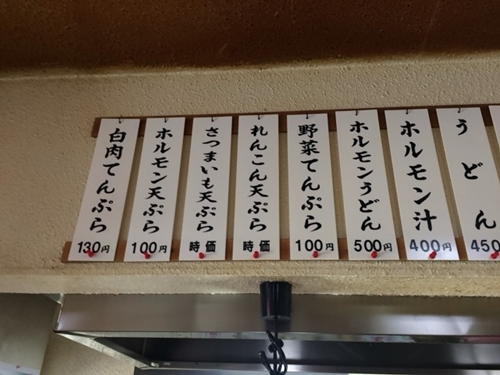 白肉てんぷら
130円
ホルモン天ぷら
100円
さつまいも天ぷら
時価
れんこん天ぷら
時価
野菜てんぷら
100円
ホルモンうどん
500円
ホルモン汁
400円
うどん
450